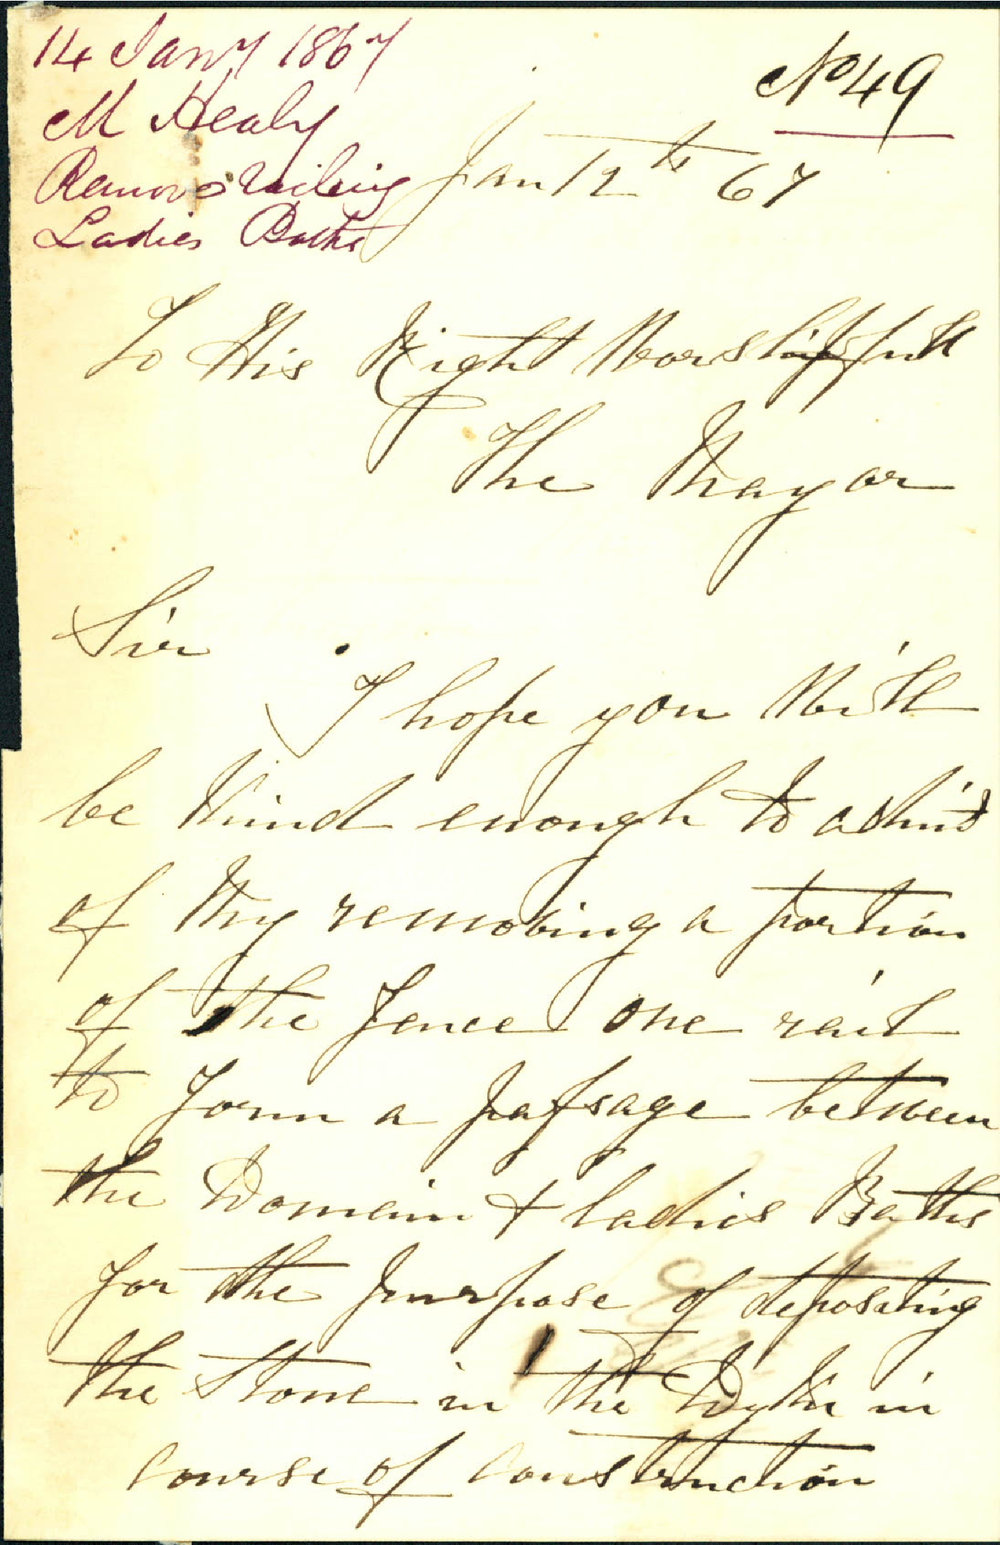 14 Jany 1867
M Healy
Remove railing
Ladies Baths
No 49
Jan 12th 67
To His Right Worshipfull
The Mayor
Sir
I hope you Will
be Kind enough to admit
of My removing a portion
of the Fence one rail
to Form a passage between
the Domain + Ladies Baths
for the Purpose of deposating
the Stone in the Dyke in
course of Construction